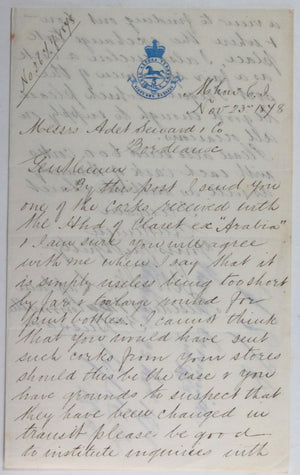 Nov 23rd 1878
Messrs Adet Seward & Co
Bordeaux
Gentlemen
By this post I send you
one of the corks received with
the Hhd of Claret ex "Arabia"
& I am sure you will agree
with me when I say that it
is simply useless being too short
by far & too large round for
pint bottles. I cannot think
that you would have sent
such corks from your stores
should this be the case & you
have grounds to suspect that
they have been changed in
transit please be good
to institute inquiries with